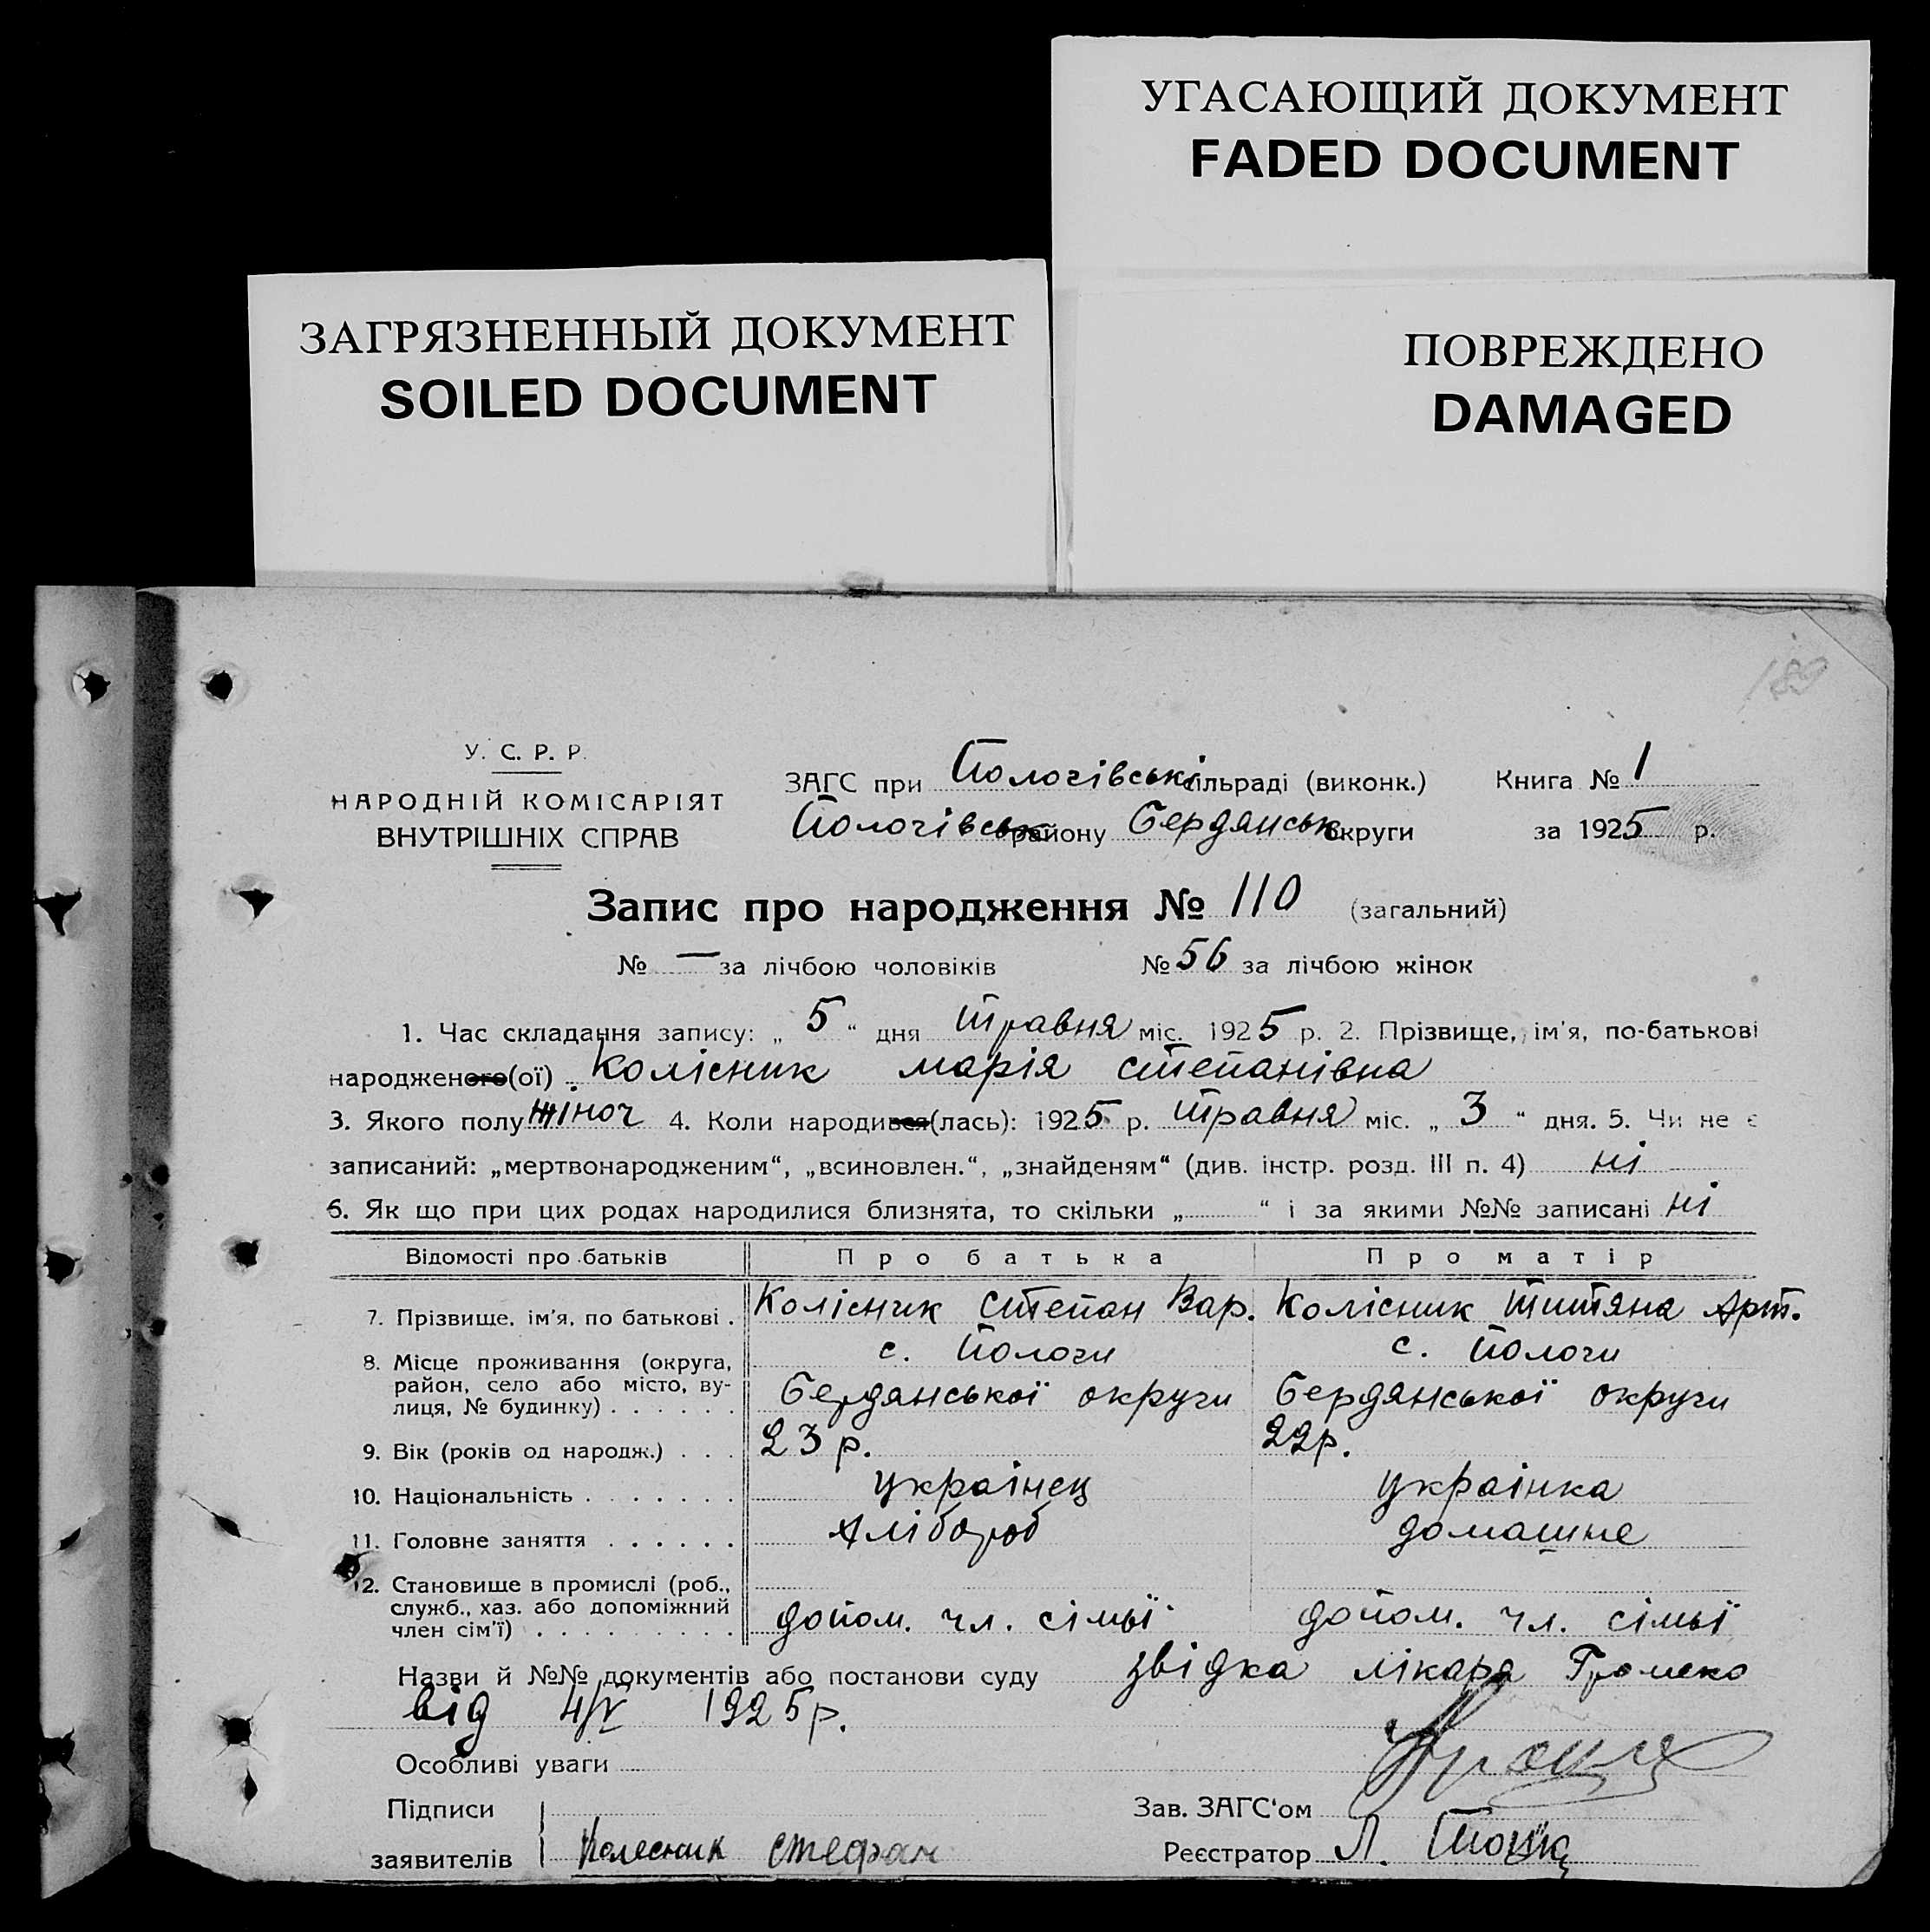 УГАСАЮЩИЙ ДОКУМЕНТ
FADED DOCUMENT
ЗАГРЯЗНЕННЫЙ ДОКУМЕНТ
SOILED DOCUMENT
ПОВРЕЖДЕНО
DAMAGED
189
У. С. Р. Р.
НАРОДНІЙ КОМІСАРІЯТ
ВНУТРІШНІХ СПРАВ
ЗАГС при Пологівській сільраді (виконк.) Книга № 1
Пологівськ району Бердянськ округи за 1925 р.
Запис про народження № 110 (загальний)
№ — за лічбою чоловіків № 56 за лічбою жінок
1. Час складання запису: „ 5 “ дня травня міс. 1925 р. 2. Прізвище, ім'я, по-батькові
народженого(ої) Колісник Марія Степанівна
3. Якого полу жіноч 4. Коли народився(лась): 1925 р. травня міс. „ 3 “ дня. 5. Чи не є
записаний: „мертвонародженим“, „всиновлен.“, „знайденям“ (див. інстр. розд. III п. 4) ні
6. Як що при цих родах народилися близнята, то скільки „ “ і за якими №№ записані ні
Відомості про батьків Про батька Про матір
7. Прізвище, ім'я, по батькові . Колісник Степан Вар. Колісник Титяна Арт.
8. Місце проживання (округа, район, село або місто, вулиця, № будинку) . . . . . . с. Пологи Бердянської округи с. Пологи Бердянської округи
9. Вік (років од народж.) . . . 23 р. 22 р.
10. Національність . . . . . . . українец українка
11. Головне заняття . . . . . . хлібороб домашне
12. Становище в промислі (роб., служб., хаз. або допоміжний член сім'ї) . . . . . . . . . допом. чл. сімьї допом. чл. сімьї
Назви й №№ документів або постанови суду звідка лікаря Громеко
від 4/V 1925 р.
Особливі уваги
Підписи Зав. ЗАГС'ом
заявителів Колесник Стефан Реєстратор Л.